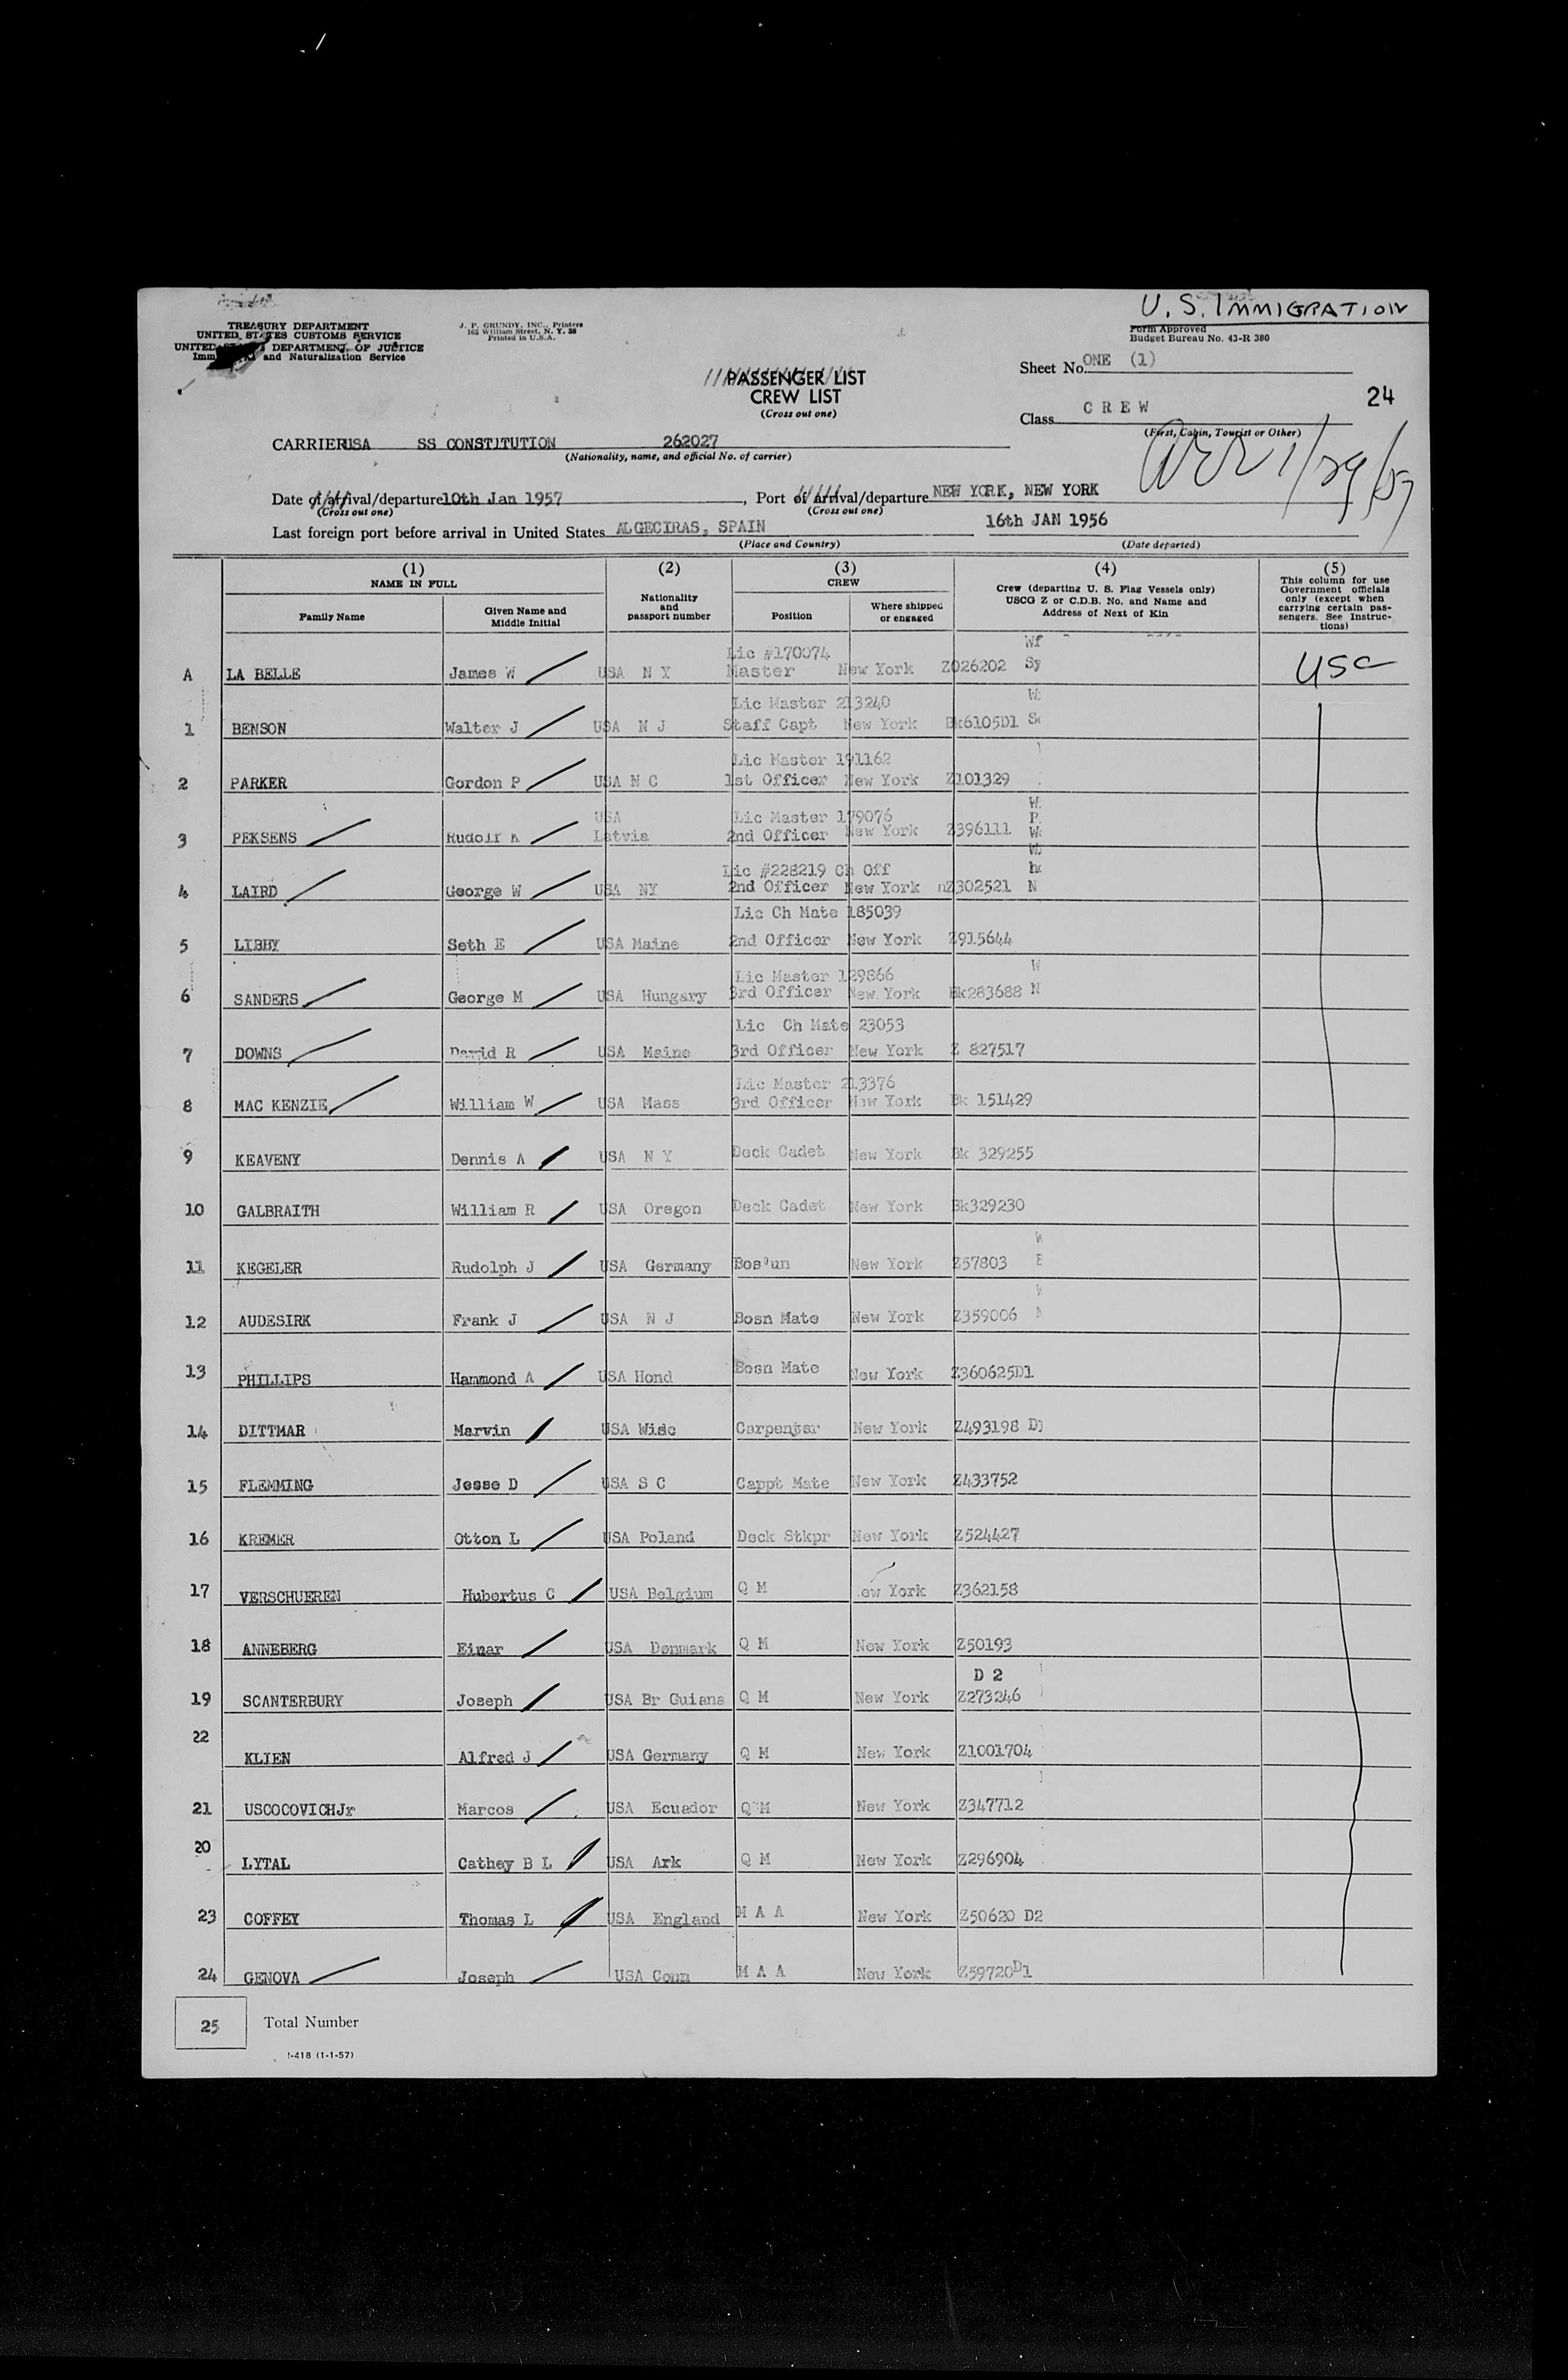 U. S. IMMIGRATION
TREASURY DEPARTMENT
UNITED STATES CUSTOMS SERVICE
UNITED DEPARTMENT OF JUSTICE
and Naturalization Service
J. P. GRUNDY, INC., Printers
165 William Street, N. Y. 38
Printed in U.S.A.
Form Approved
Budget Bureau No. 43-R 380
Sheet No. ONE (1)
PASSENGER LIST
CREW LIST
(Cross out one)
24
Class CREW
(First, Cabin, Tourist or Other)
CARRIER USA SS CONSTITUTION 262027
(Nationality, name, and official No. of carrier)
1/29/57
Date of arrival/departure 10th Jan 1957, Port of arrival/departure NEW YORK, NEW YORK
(Cross out one) (Cross out one)
Last foreign port before arrival in United States ALGECIRAS, SPAIN 16th JAN 1956
(Place and Country) (Date departed)
(1) NAME IN FULL
Family Name
Given Name and Middle Initial
(2) Nationality and passport number
(3) CREW
Position
Where shipped or engaged
(4) Crew (departing U. S. Flag Vessels only) USCG Z or C.D.B. No. and Name and Address of Next of Kin
(5) This column for use Government officials only (except when carrying certain passengers. See Instructions)
Lic #170074
A LA BELLE James W USA N Y Master New York Z026202 Sy USC
Lic Master 213240
1 BENSON Walter J USA N J Staff Capt New York Bk6105D1
Lic Master 191162
2 PARKER Gordon P USA N C 1st Officer New York Z101329
USA Lic Master 179076
3 PEKSENS Rudolf K Latvia 2nd Officer New York Z396111
Lic #228219 Ch Off
4 LAIRD George W USA NY 2nd Officer New York nZ302521 N
Lic Ch Mate 185039
5 LIBBY Seth E USA Maine 2nd Officer New York Z915644
Lic Master 129866
6 SANDERS George M USA Hungary 3rd Officer New York Bk283688 N
Lic Ch Mate 23053
7 DOWNS David R USA Maine 3rd Officer New York Z 827517
Lic Master 213376
8 MAC KENZIE William W USA Mass 3rd Officer New York Bk 151429
9 KEAVENY Dennis A USA N Y Deck Cadet New York Bk 329255
10 GALBRAITH William R USA Oregon Deck Cadet New York Bk329230
11 KEGELER Rudolph J USA Germany Bos'un New York Z57803
12 AUDESIRK Frank J USA N J Bosn Mate New York Z359006
13 PHILLIPS Hammond A USA Hond Bosn Mate New York Z360625D1
14 DITTMAR Marvin USA Wisc Carpenter New York Z493198 D1
15 FLEMMING Jesse D USA S C Cappt Mate New York Z433752
16 KREMER Otton L USA Poland Deck Stkpr New York Z524427
17 VERSCHUEREN Hubertus C USA Belgium Q M ew York Z362158
18 ANNEBERG Einar USA Denmark Q M New York Z50193
D 2
19 SCANTERBURY Joseph USA Br Guiana Q M New York Z273246
22 KLIEN Alfred J USA Germany Q M New York Z1001704
21 USCOCOVICHJr Marcos USA Ecuador Q M New York Z347712
20 LYTAL Cathey B L USA Ark Q M New York Z296904
23 COFFEY Thomas L USA England M A A New York Z50620 D2
24 GENOVA Joseph USA Conn M A A New York Z59720D1
25 Total Number
I-418 (1-1-57)